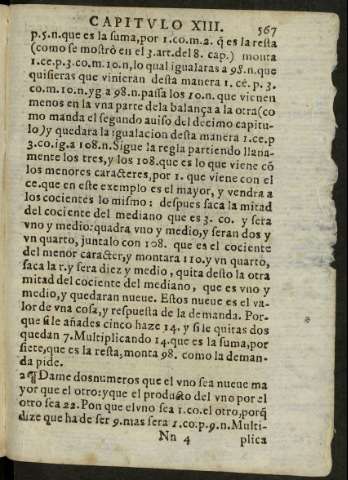 CAPITVLO XIII. 567
p.5.n.que es la suma,por 1.co.m.2. q̃ es la resta
(como se mostrò en el 3.art.del 8. cap.) monta
1.ce.p.3.co.m.10.n,lo qual igualaras a 98.n.que
quisieras que vinieran desta manera 1. ce. p. 3.
co.m.10.n.yg a 98.n.passa los 10.n. que vienen
menos en la vna parte dela balança a la otra(co
mo manda el segundo auiso del decimo capitu-
lo)y quedara la igualacion desta manera 1.ce.p
3.co.ig.a 108.n.Sigue la regla partiendo llana-
mente los tres,y los 108.que es lo que viene cõ
los menores caracteres,por 1. que viene con el
ce.que en este exemplo es el mayor, y vendra a
los cocientes lo mismo: despues saca la mitad
del cociente del mediano que es 3. co. y sera
vno y medio:quadra vno y medio,y seran dos y
vn quarto, juntalo con 108. que es el cociente
del menor caracter,y montara 110.y vn quarto,
saca la r.y sera diez y medio, quita desto la otra
mitad del cociente del mediano, que es vno y
medio,y quedaran nueue. Estos nueue es el va-
lor de vna cosa,y respuesta de la demanda. Por-
que si le añades cinco haze 14. y si le quitas dos
quedan 7.Multiplicando 14.que es la suma,por
siete,que es la resta,monta 98. como la deman-
da pide.
2 ¶ Dame dosnumeros que el vno sea nueue ma
yor que el otro:yque el producto del vno por el
otro sea 22.Pon que elvno sea 1.co.el otro,porq̃
dize que ha de ser 9.mas sera 1.co.p.9.n.Multi-
Nn 4 plica